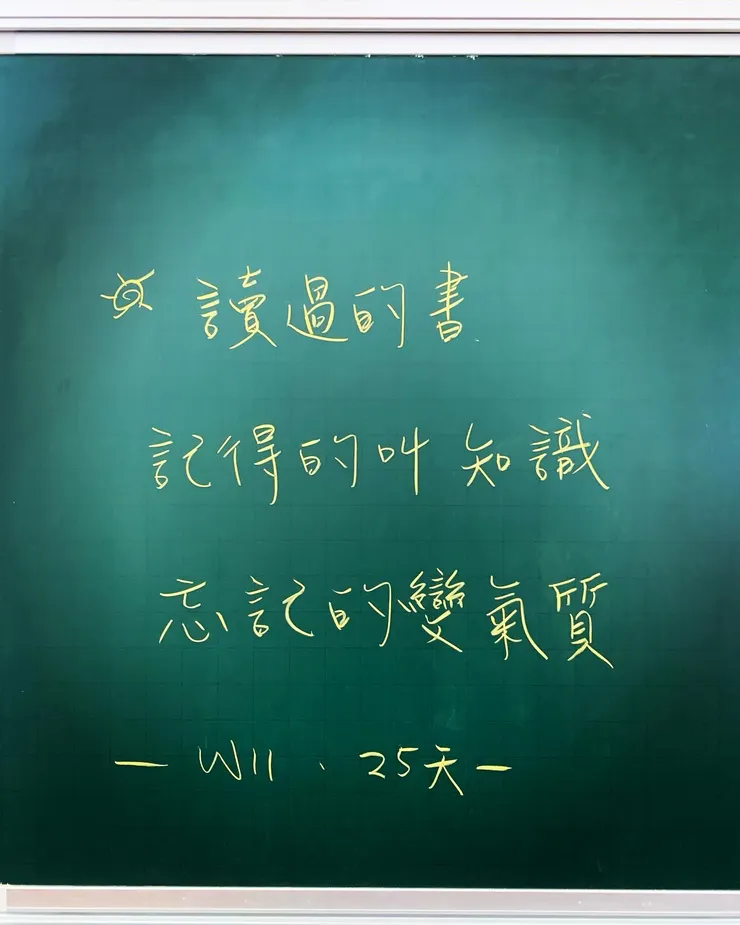 讀過的書
記得的叫知識
忘記的變氣質
— W11 . 25天 —